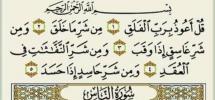 بِسْمِ اللَّهِ الرَّحْمَٰنِ الرَّحِيمِ
قُلْ أَعُوذُ بِرَبِّ الْفَلَقِ ١ مِن شَرِّ مَا خَلَقَ ٢ وَمِن
شَرِّ غَاسِقٍ إِذَا وَقَبَ ٣ وَمِن شَرِّ النَّفَّاثَاتِ فِي
الْعُقَدِ ٤ وَمِن شَرِّ حَاسِدٍ إِذَا حَسَدَ ٥
سُورَةُ النَّاسِ